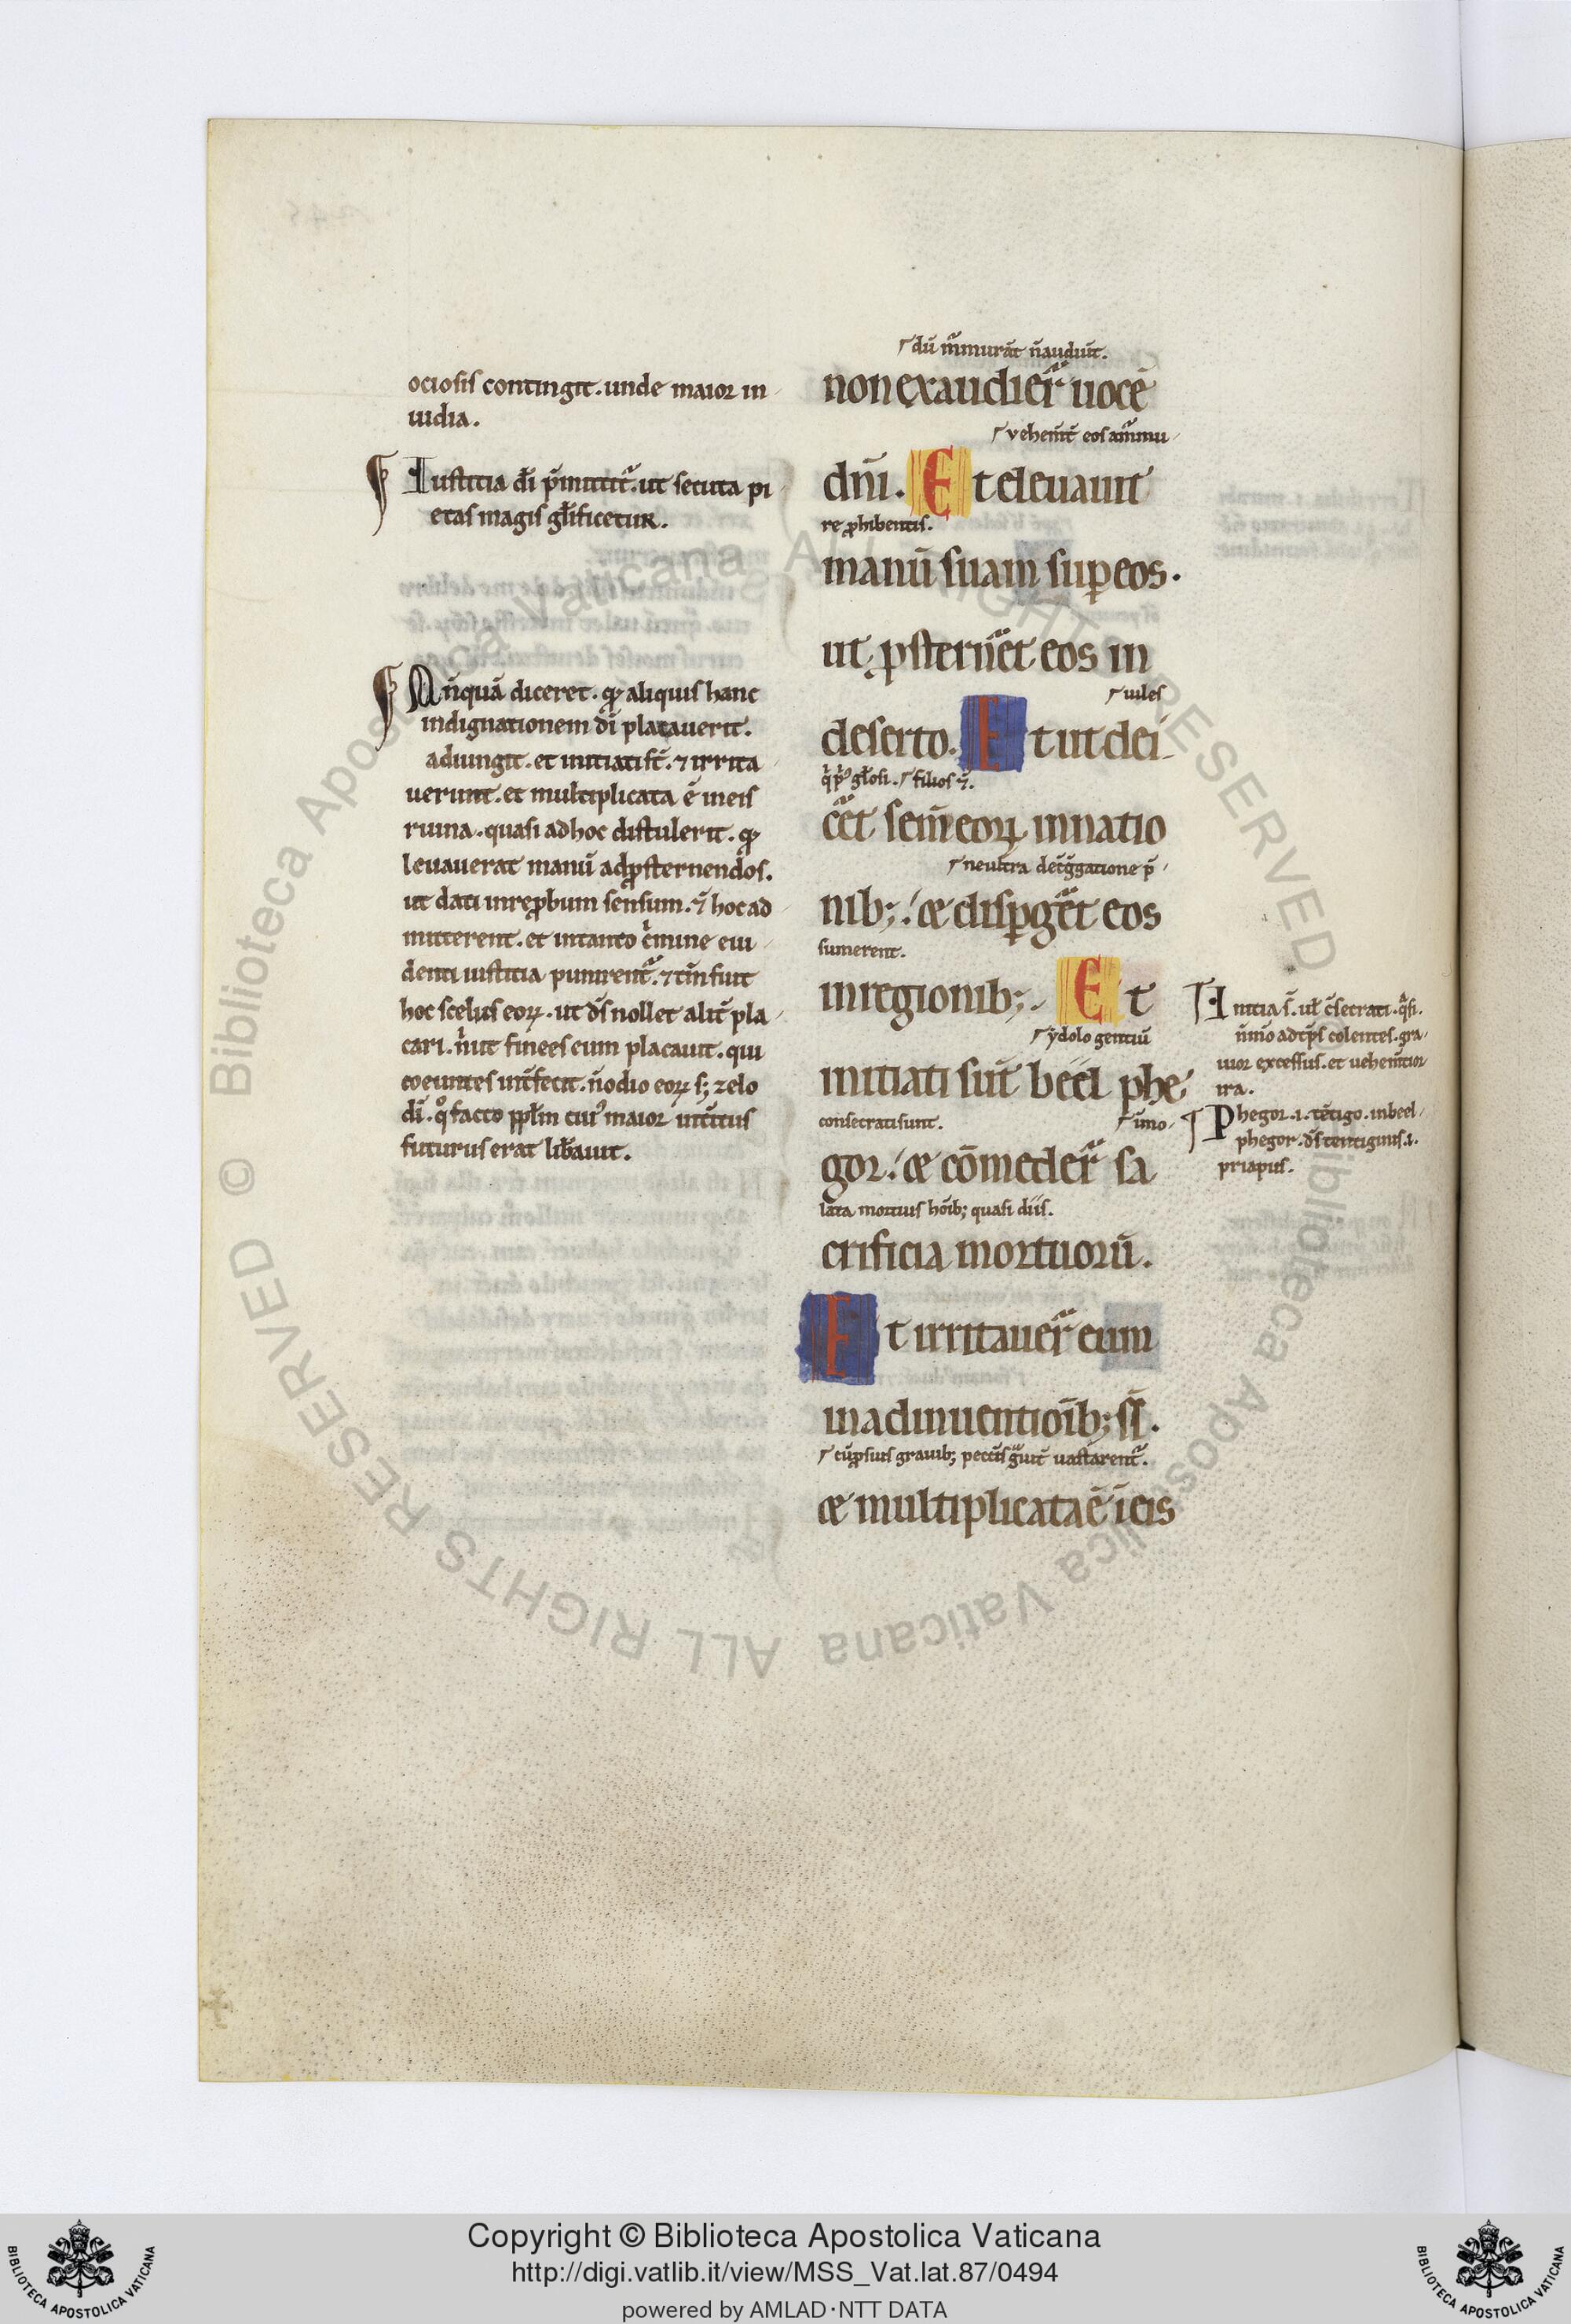 ociosis contingit. unde maior in
uidia.
Iustitia dī p̄mittit᷑. ut secuta pi
etas magis gl̄ificetur.
Nūquā diceret. qꝫ aliquis hanc
indignationem dī placauerit.
adiungit. et initiati st̄. ⁊ irrita
uerunt. et multiplicata ē in eis
ruina. quasi ad hoc distulerit. qꝫ
leuauerat manū ad ꝓsternendos.
ut dati in reꝓbum sensum. ⁊ hoc ad
mitterent. et in tanto c̄mine eui
denti iustitia punirent᷑. ⁊ tm̄ fuit
hoc scelus eoꝝ. ut dš nollet alit̄ pla
cari. n̄ ut finees eum placauit. qui
coeuntes int̄fecit. n̄ odio eoꝝ sꝫ zelo
dī. qͦ facto ppl̄m cuiꝰ maior int̄itus
futurus erat lib̄auit.
dū m̄murāt n̄ audiūt.
non exaudier̄ uocē
vehem̄t̄ eos ammu
dn̄i. Et eleuauit
re ꝓhibentis.
manū suam suꝑ eos.
ut ꝓsternet eos in
uiles
deserto. Et ut dei
filios ⁊.
cēt sem̄ eoꝝ in natio
ne ultra
nibꝫ. ⁊ disꝑgēt eos
sumerent.
in regionibꝫ. Et
ydolo gentiū
initiati sūt beel phe
consecrati sunt. īmo
gor. ⁊ cōmeder̄ sa
lata mortuis hōibꝫ quasi diis.
crificia mortuorū.
Et irritauer̄ eum
in adinuentioībꝫ sī.
cū ꝓ suis grauibꝫ pecc̄is g̈uit̄ uastarent᷑.
⁊ multiplicata ē ī eis
Initia s̄. ul̄ c̄secrati. q̄si.
n̄ īmo ad tp̄s colentes. gra
uior excessus. et uehem̄tior
ira.
Phegor. i. tētigo. in beel
phegor. dš tentiginis. i.
priapus.
Copyright © Biblioteca Apostolica Vaticana
http://digi.vatlib.it/view/MSS_Vat.lat.87/0494
powered by AMLAD·NTT DATA
BIBLIOTECA APOSTOLICA VATICANA
BIBLIOTECA APOSTOLICA VATICANA
© Biblioteca Apostolica Vaticana ALL RIGHTS RESERVED
© Biblioteca Apostolica Vaticana ALL RIGHTS RESERVED